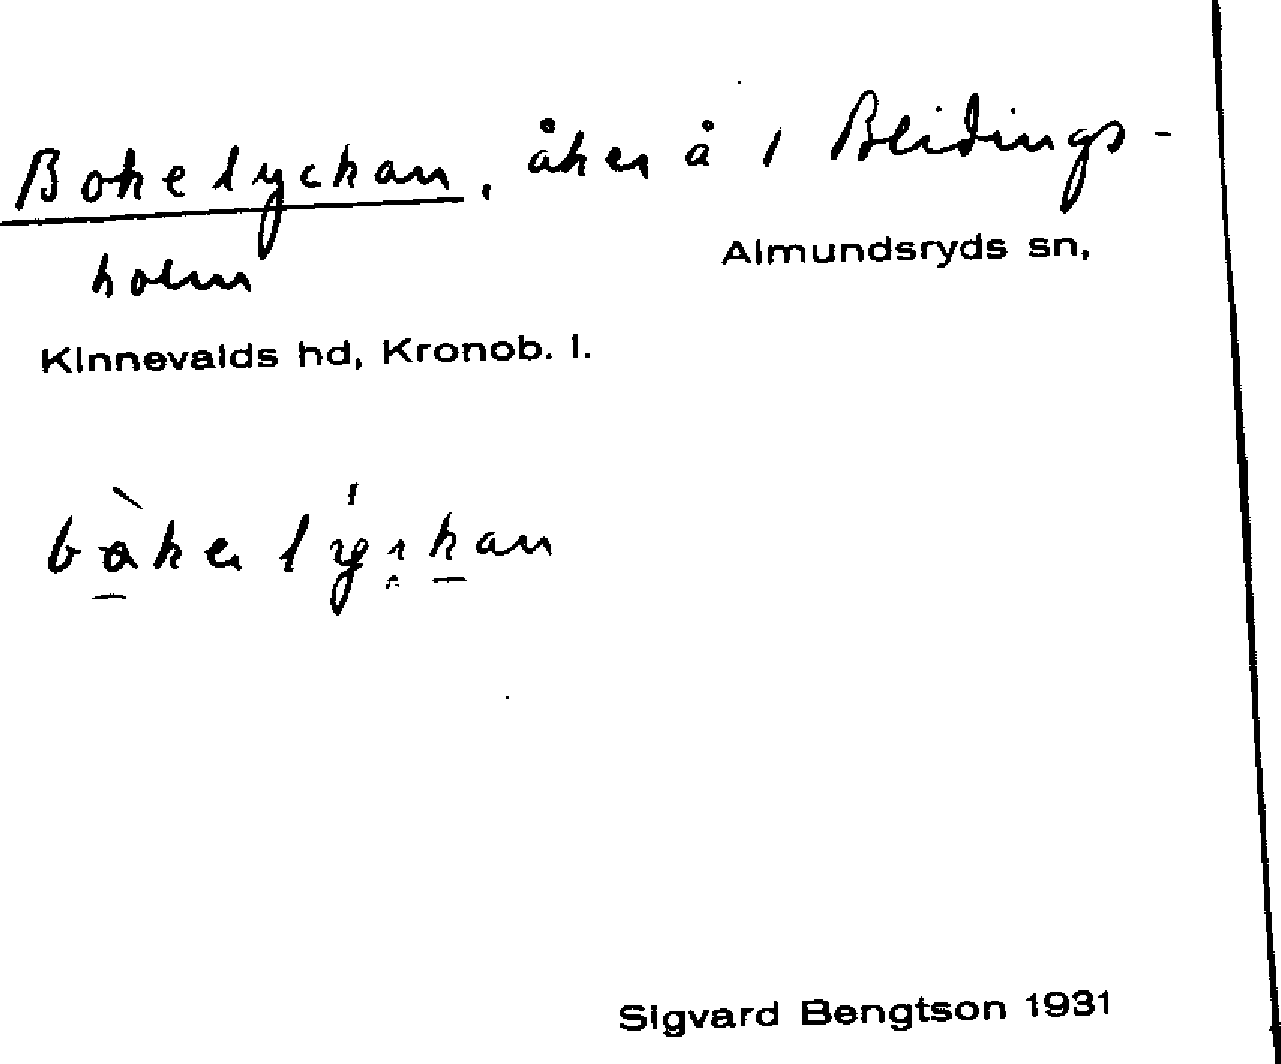 Bokelyckan, åker å 1 Bleidings-
holm
Almundsryds sn,
Kinnevalds hd, Kronob. l.
Sigvard Bengtson 1931